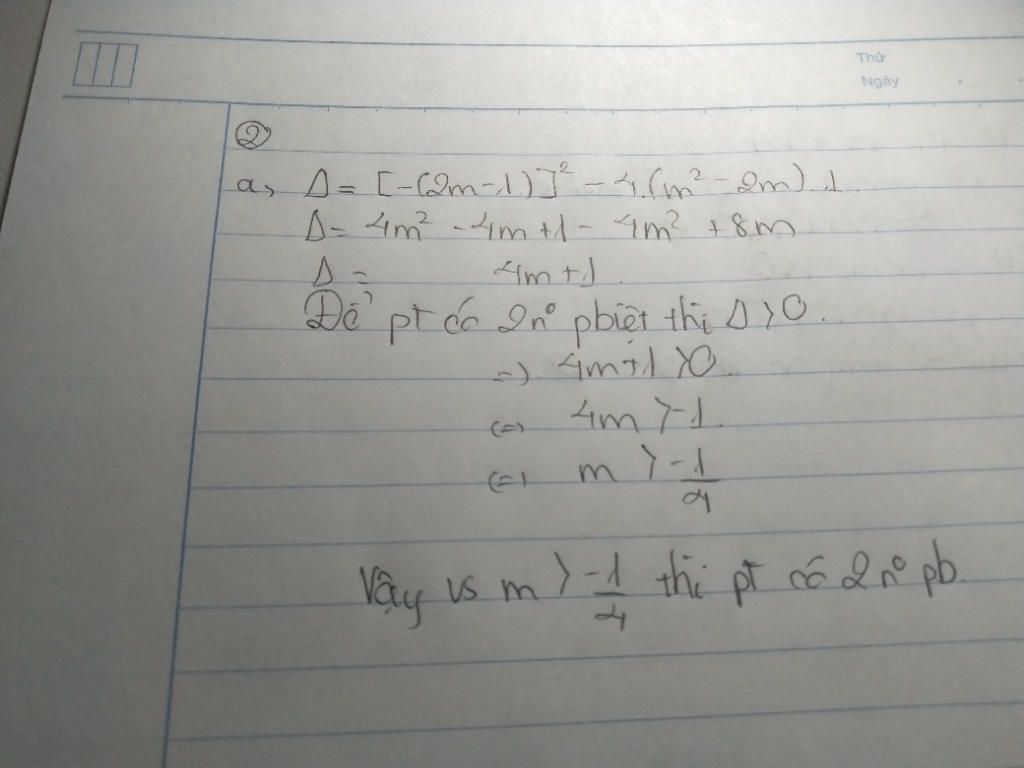 Thứ
Ngày
②
a, Δ = [-(2m-1)]² - 4.(m² - 2m).1
Δ = 4m² - 4m + 1 - 4m² + 8m
Δ = 4m + 1.
Để pt có 2n° pbiệt thì Δ > 0.
=> 4m + 1 > 0.
<=> 4m > -1.
<=> m > -1/4
Vậy vs m > -1/4 thì pt có 2n° pb.